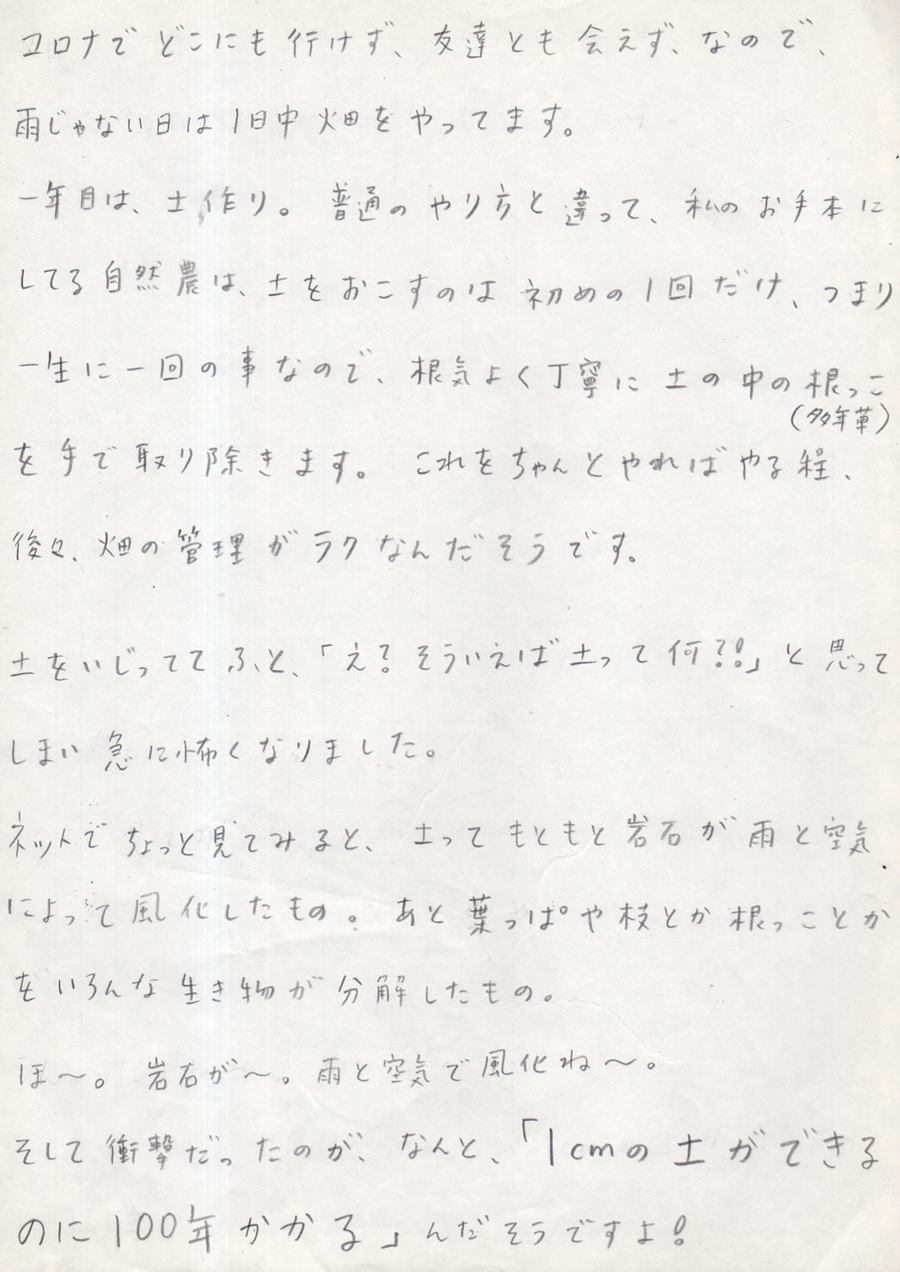 コロナでどこにも行けず、友達とも会えず、なので、
雨じゃない日は1日中畑をやってます。
一年目は、土作り。普通のやり方と違って、私のお手本に
してる自然農は、土をおこすのは初めの1回だけ、つまり
一生に一回の事なので、根気よく丁寧に土の中の根っこ
(多年草)
を手で取り除きます。これをちゃんとやればやる程、
後々、畑の管理がラクなんだそうです。
土をいじっててふと、「え?そういえば土って何?!」と思って
しまい急に怖くなりました。
ネットでちょっと見てみると、土ってもともと岩石が雨と空気
によって風化したもの。あと葉っぱや枝とか根っことか
をいろんな生き物が分解したもの。
ほ〜。岩石が〜。雨と空気で風化ね〜。
そして衝撃だったのが、なんと、「1cmの土ができる
のに100年かかる」んだそうですよ!